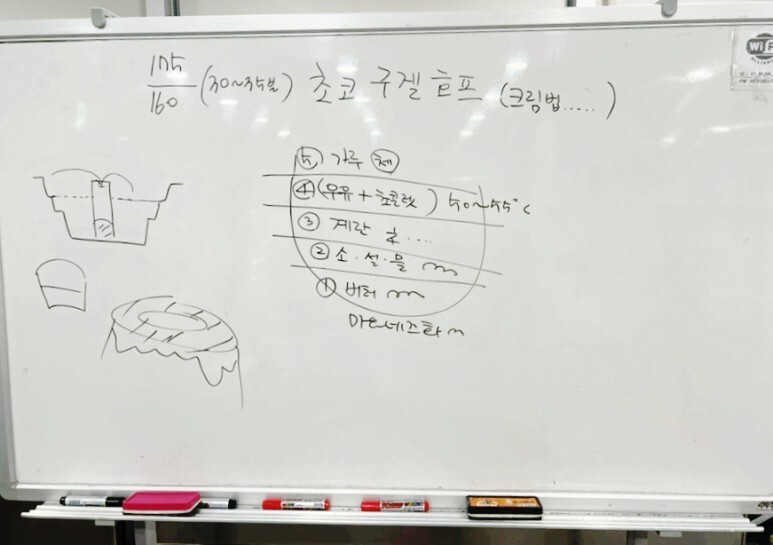 175/160 (30~35분) 초코 구겔호프 (크림법.....)
⑤ 가루 체
④ (우유 + 초콜릿) 50~55°c
③ 계란 ....
② 소·설·물
① 버터
마요네즈화
WiFi